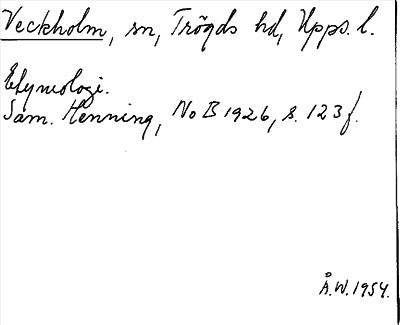 Veckholm, sn, Trögds hd, Upps. l.
Etymologi.
Sam. Henning, NoB 1926, s. 123 f.
Å.W. 1954.